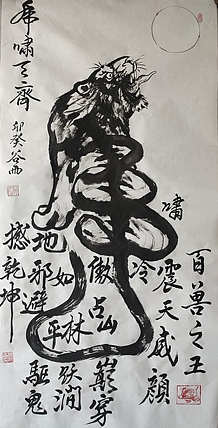 虎嘯天齊
卯癸谷雨
百兽之王
震天威颜
嘯
冷
傲占山巅穿
如林跃涧
地邪避平驅鬼
撼乾坤